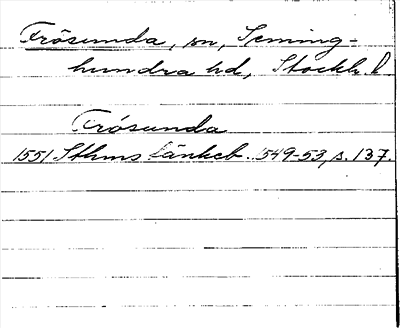 Frösunda, sn, Seming-
hundra hd, Stockh. l
Frösunda
1551 Sthms tänkeb. 1549-53, s. 137.